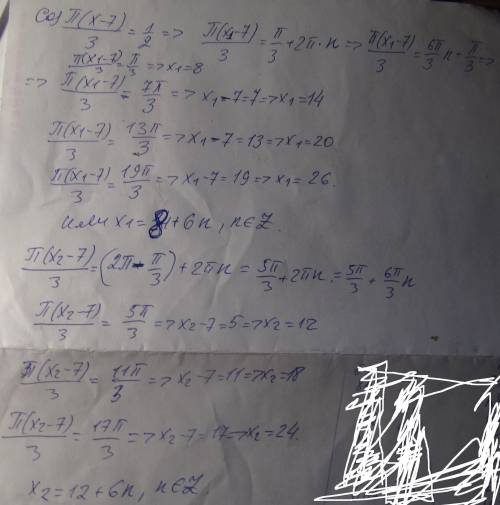 cos π(x-7)/3 = 1/2 => π(x₁-7)/3 = π/3 + 2π·n => π(x₁-7)/3 = 6π/3 n + π/3 =>
π(x₁-7)/3 = π/3 => x₁ = 8
=> π(x₁-7)/3 = 7π/3 => x₁-7=7 => x₁ = 14
π(x₁-7)/3 = 13π/3 => x₁-7 = 13 => x₁ = 20
π(x₁-7)/3 = 19π/3 => x₁-7 = 19 => x₁ = 26.
или x₁ = 8+6n, n∈Z.
π(x₂-7)/3 = (2π - π/3) + 2πn = 5π/3 + 2πn = 5π/3 + 6π/3 n
π(x₂-7)/3 = 5π/3 => x₂-7 = 5 => x₂ = 12
π(x₂-7)/3 = 11π/3 => x₂-7 = 11 => x₂ = 18
π(x₂-7)/3 = 17π/3 => x₂-7 = 17 => x₂ = 24.
x₂ = 12+6n, n∈Z.